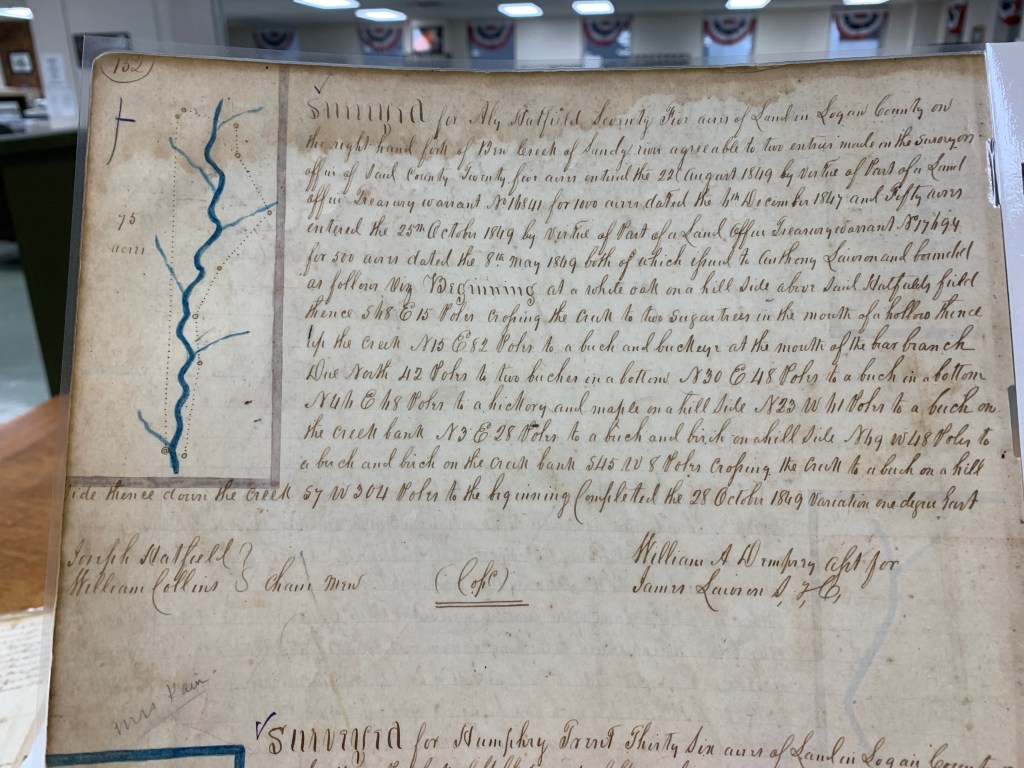 132
75
acres
Surveyed for Aly Hatfield Seventy Five acres of Land in Logan County on
the right hand fork of Ben Creek of Sandy river agreeable to two entries made in the surveyors
office of said County Twenty five acres entered the 22d August 1849 by virtue of Part of a Land
office Treasury warrant No 16841 for 1000 acres dated the 6th December 1847 and Fifty acres
entered the 25th October 1849 by virtue of Part of a Land office Treasury warrant No 17694
for 500 acres dated the 8th May 1849 both of which issued to Anthony Lawson and bounded
as follows Viz Beginning at a white oak on a hill side above Said Hatfields field
thence S48 E 15 Poles crossing the creek to two sugartrees in the mouth of a hollow thence
up the creek N15 E 82 Poles to a buch and buckeye at the mouth of the bear branch
Due North 42 Poles to two buches in a bottom N30 E 48 Poles to a buch in a bottom
N46 E 68 Poles to a hickory and maple on a hill side N23 W 61 Poles to a buch on
the creek bank N3 E 28 Poles to a buch and birch on a hill side N49 W 48 Poles to
a buch and birch on the creek bank S45 W 8 Poles crossing the creek to a buch on a hill
side thence down the creek S7 W 304 Poles to the beginning Completed the 28 October 1849 Variation one degree East
Joseph Hatfield
William Collins Chain men
(Copd)
William A Dempsey asst for
James Lawson S. L. C.
Mrs
Surveyed for Humphry Trent Thirty Six acres of Land in Logan County